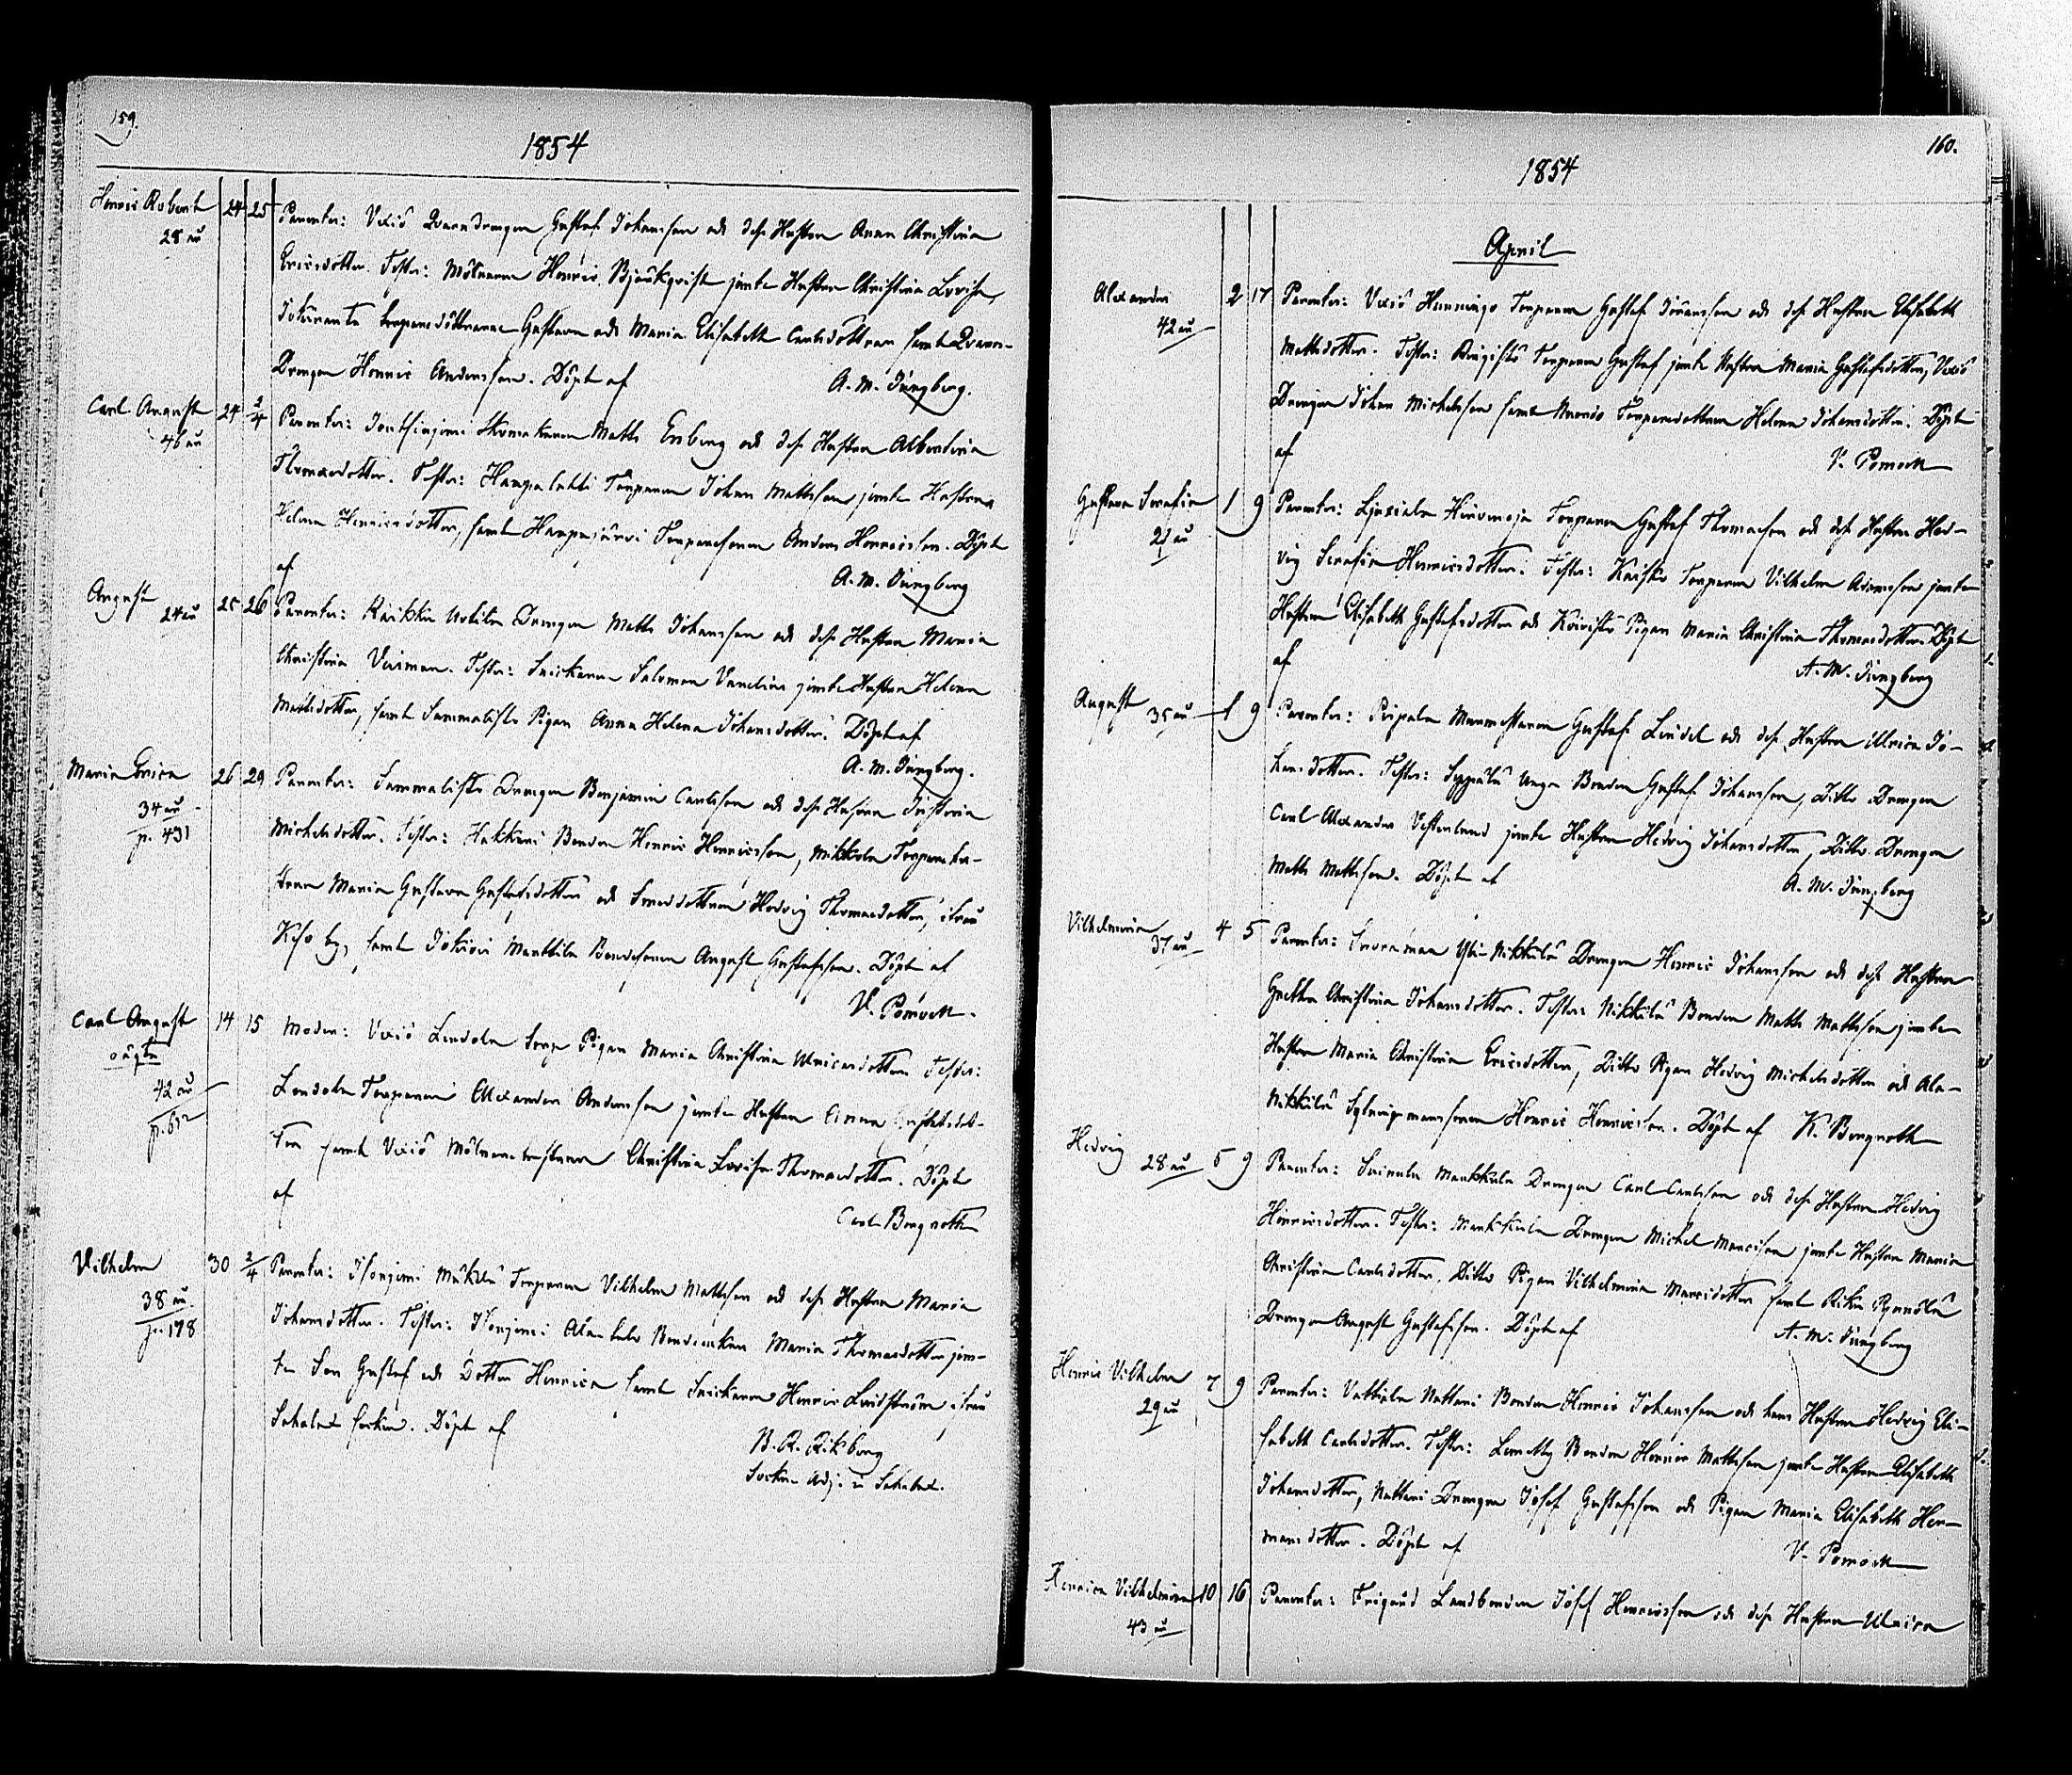 159.
1854
Henric Robert 24 25 Parenter: Vexiö Qvarndrengen Gustaf Johansson och dess Hustru Anna Christina
28 år Ericsdotter. Testes: Mölnaren Henric Björkqvist jemte Hustru Christina Lovisa,
Torparedöttrarne Gustava och Maria Elisabeth Carlsdöttrar samt Qvarn-
Drengen Henric Andersson. Döpt af A. M. Ljungberg.
Carl August 24 2/4 Parenter: Skomakaren Matts Enberg och dess Hustru Albertina
46 år Thomasdotter. Testes: Torparen Johan Mattsson jemte Hustrun
Helena Henricsdotter, samt Torparesonen Anders Henricsson. Döpt
af A. M. Ljungberg
August 24 år 25 26 Parenter: Raikka Uotila Drengen Matts Johansson och dess Hustru Maria
Christina Vaisman. Testes: Snickaren Salomon Vanelius jemte Hustru Helena
Mattsdotter, samt Sammalisto Pigan Anna Helena Johansdotter. Döpt af
A. M. Ljungberg.
Maria Erica 26 29 Parenter: Sammalisto Drengen Benjamin Carlsson och dess Hustru Justina
34 år Michelsdotter. Testes: Hakkari Bonden Henric Henricsson, Mikkola Torparehu-
p. 431 strun Maria Gustava Gustafsdotter och Smeddottren Hedvig Thomasdotter, ifrån
by, samt Marttila Bondesonen August Gustafsson. Döpt af
V. Pomoell.
Carl August 14 15 Moder: Vexiö Lendola torp Pigan Maria Christina Ulricasdotter. Testes:
oägta
42 år Lendola Torparen Alexander Andersson jemte Hustru Anna Gustafsdot-
p. 612 ter samt Vexiö Mölnarehustrun Christina Lovisa Thomasdotter. Döpt
af Carl Bergroth
Vilhelm 30 2/4 Parenter: Isonjemi Mäkelä Torparen Vilhelm Mattsson och dess Hustru Maria
38 år Johansdotter. Testes: Isonjemi Bondeenkan Maria Thomasdotter jem-
p. 178 te Son Gustaf och Dotter Henrica samt Snickaren Henric Lindström ifrån
Sahalax socken. Döpt af
B. R. Rikberg
Sockne Adj. i Sahalax.
160.
1854
April
Alexander 2 17 Parenter: Vexiö Hemmingo Torparen Gustaf Göransson och dess Hustru Elisabeth
42 år Mattsdotter. Testes: Torparen Gustaf jemte Hustru Maria Gustafsdotter, Vexiö
Drengen Johan Michelsson samt Torparedottren Helena Johansdotter. Döpt
af V. Pomoell
Gustava Serafia 1 9 Parenter: Liuxiala Torparen Gustaf Thomasson och dess Hustru Hed-
21 år vig Serafia Henricsdotter. Testes: Kaisko Torparen Vilhelm Adamsson jemte
Hustrun Elisabeth Gustafsdotter och Koivisto Pigan Maria Christina Thomasdotter. Döpt
af A. M. Ljungberg
August 35 år 1 9 Parenter: Mannestaren Gustaf Lindel och dess Hustru Ulrica Jo-
hansdotter. Testes: Seppälä Unga Bonden Gustaf Johansson, Ditto Drengen
Carl Alexander Vesterlund jemte Hustru Hedvig Johansdotter, Ditto Drengen
Matts Mattsson. Döpt af A. M. Ljungberg
Vilhelmina 37 år 4 5 Parenter: Suorama Yli-Nikkilä Drengen Henric Johansson och dess Hustru
Gretha Christina Johansdotter. Testes: Nikkilä Bonden Matts Mattsson jemte
Hustru Maria Christina Ericsdotter, Ditto Pigan Hedvig Michelsdotter och Ala-
Nikkilä Henric Henricsson. Döpt af K. Bergroth
Hedvig 28 år 5 9 Parenter: Markkula Drengen Carl Carlsson och dess Hustru Hedvig
Henricsdotter. Testes: Markkula Drengen Michel Marcisson jemte Hustru Maria
Christina Carlsdotter, Ditto Pigan Vilhelmina Marcidotter samt Riku Pynnölä
Drengen August Gustafsson. Döpt af A. M. Ljungberg
Henric Vilhelm 7 9 Parenter: Vatiala Nattari Bonden Henric Johansson och hans Hustru Hedvig Eli-
29 år sabeth Carlsdotter. Testes: Lemetty Bonden Henric Mattsson jemte Hustru Elisabeth
Johansdotter, Nattari Drengen Josef Gustafsson och Pigan Maria Elisabeth Her-
mansdotter. Döpt af V. Pomoell
Henrica Vilhelmina 10 16 Parenter: Frigård Landbonden Josef Henricsson och dess Hustru Ulrica
43 år